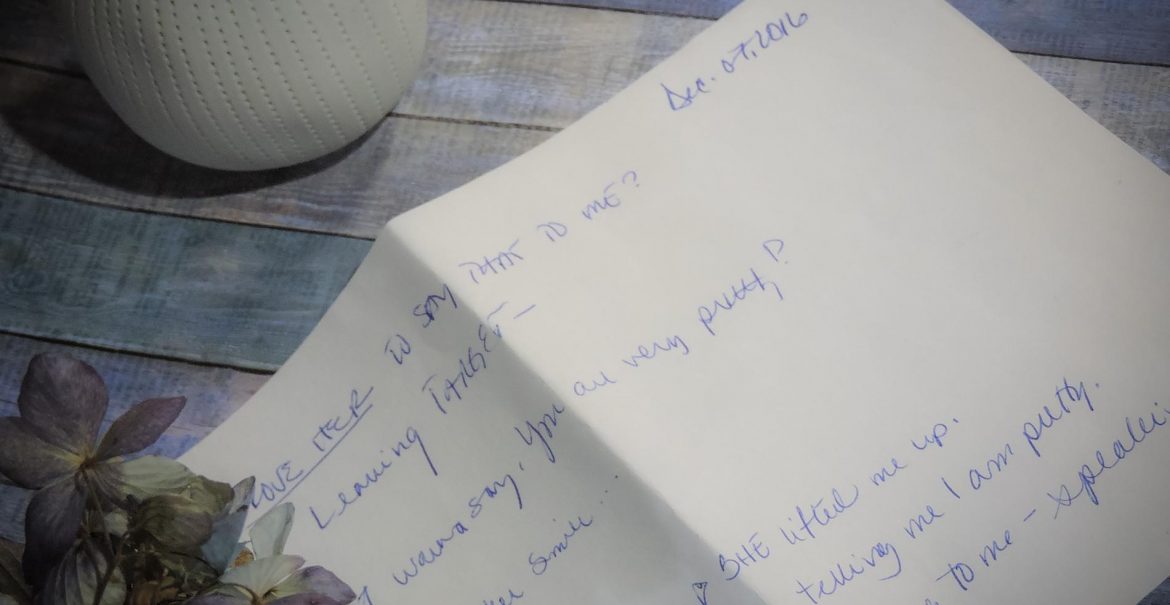 Dec. 07, 2016
LOVE HER TO SAY THAT TO ME?
Leaving TARGET—
I wanna say, You are very pretty!
her smile...
SHE lifted me up.
telling me I am pretty.
to me - speaki